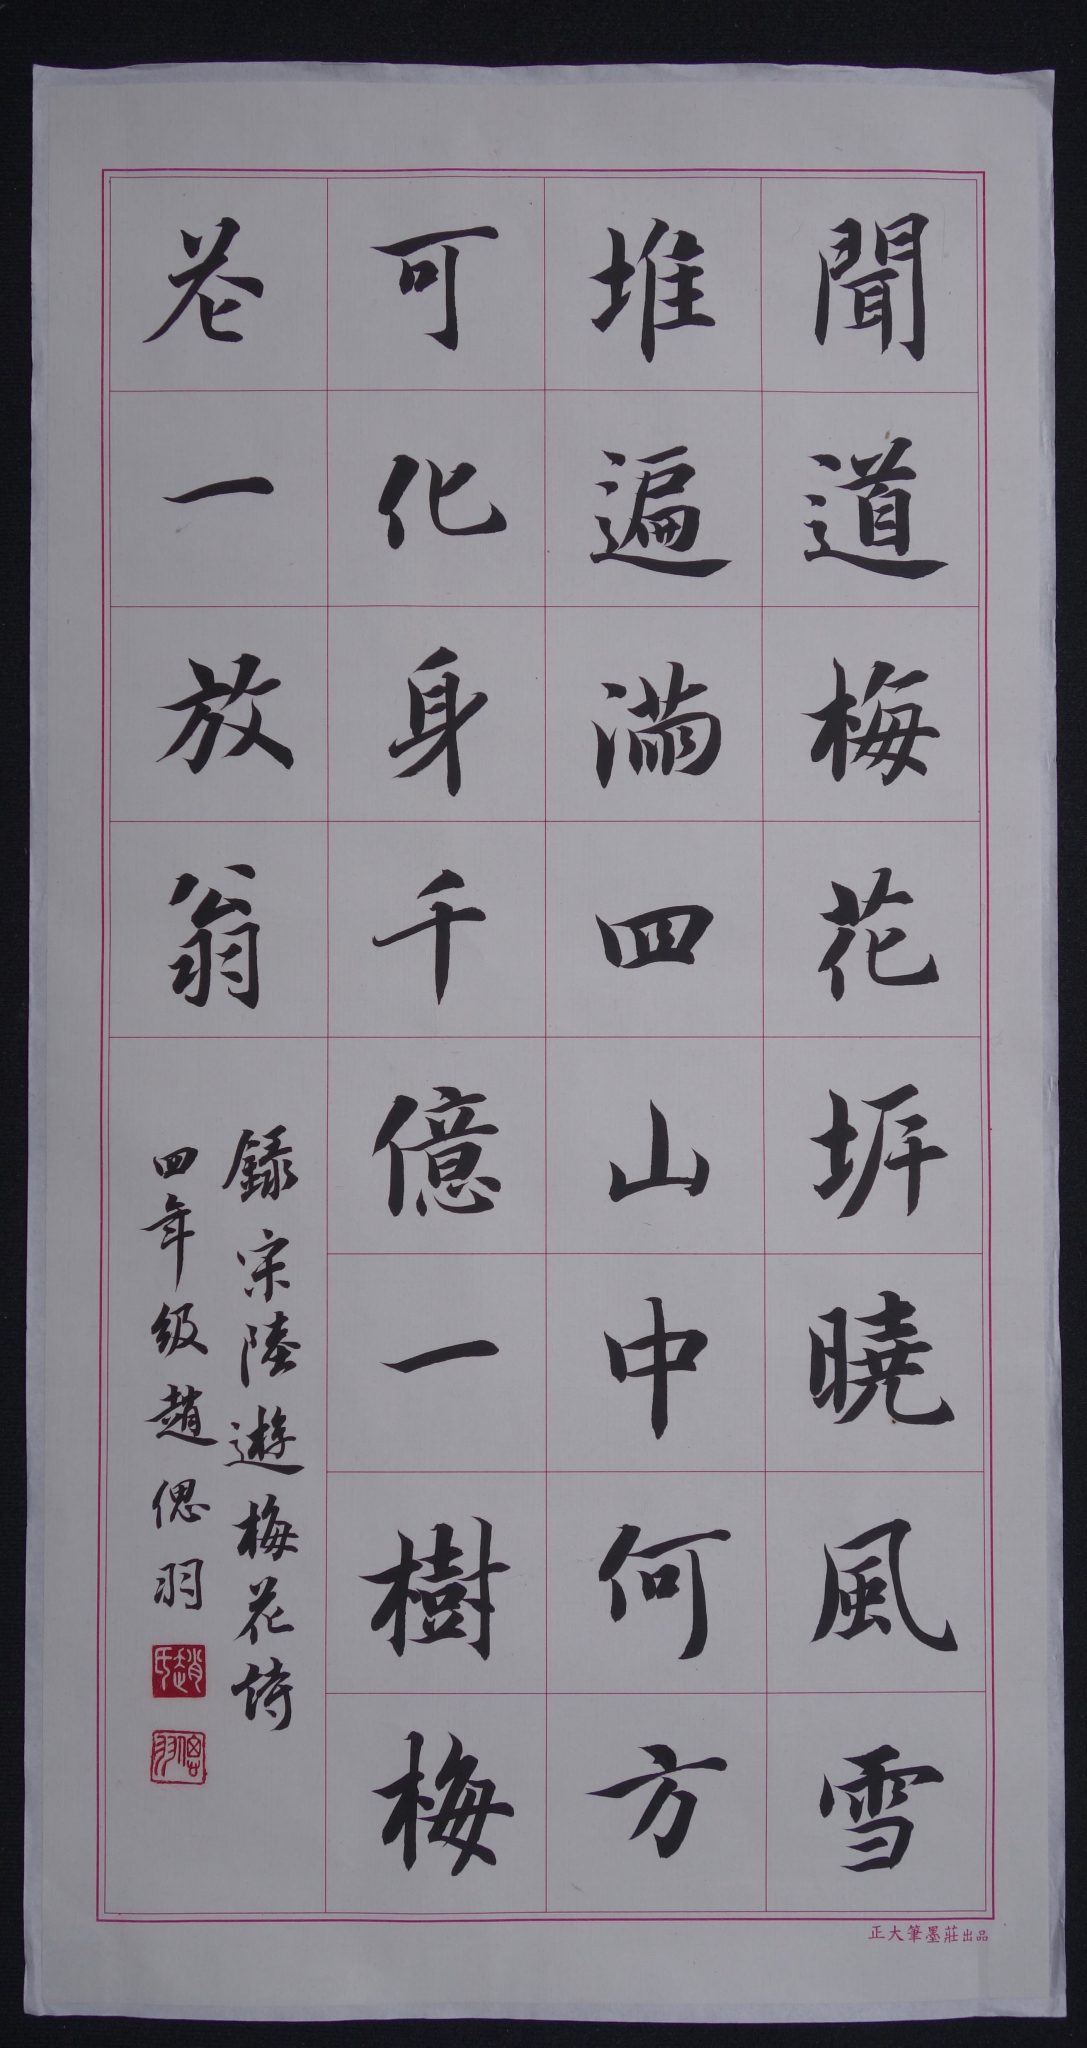 聞道梅花坼曉風雪
堆遍滿四山中何方
可化身千億一樹梅
花一放翁
錄宋陸遊梅花詩
四年级趙偲羽
趙氏
偲羽
正大筆墨莊出品